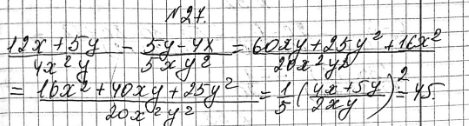 №27.
(12x+5y)/(4x²y) - (5y-4x)/(5xy²) = (60xy+25y²+16x²)/(20x²y²)
= (16x²+40xy+25y²)/(20x²y²) = 1/5 ((4x+5y)/(2xy))² = 45.